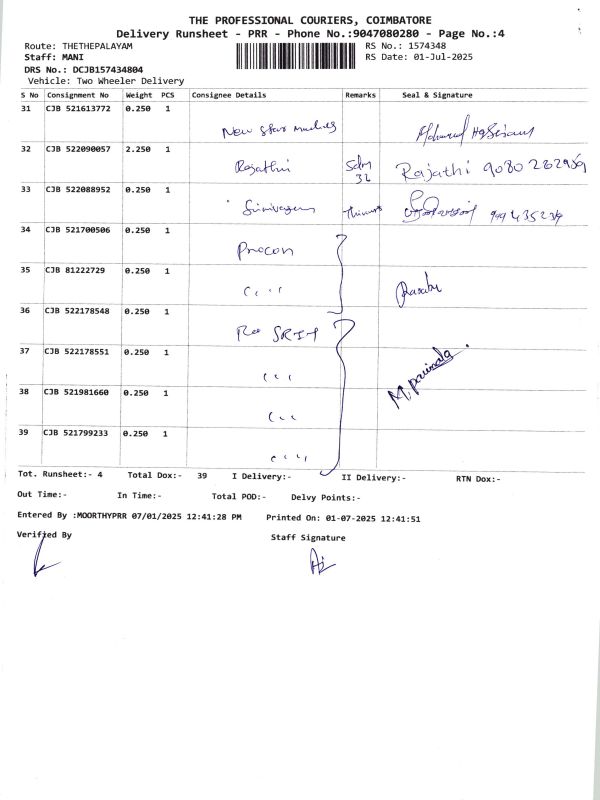 THE PROFESSIONAL COURIERS, COIMBATORE
Delivery Runsheet - PRR - Phone No.:9047080280 - Page No.:4
Route: THETHEPALAYAM RS No.: 1574348
Staff: MANI RS Date: 01-Jul-2025
DRS No.: DCJB157434804
Vehicle: Two Wheeler Delivery
S No Consignment No Weight PCS Consignee Details Remarks Seal & Signature
31 CJB 521613772 0.250 1
New Star
32 CJB 522090057 2.250 1
Rajathi 32 Rajathi 9080 262959
33 CJB 522088952 0.250 1
Srinivasan
34 CJB 521700506 0.250 1
Procon
35 CJB 81222729 0.250 1
" "
36 CJB 522178548 0.250 1
SRIT
37 CJB 522178551 0.250 1
" "
38 CJB 521981660 0.250 1
" "
39 CJB 521799233 0.250 1
" "
Tot. Runsheet:- 4 Total Dox:- 39 I Delivery:- II Delivery:- RTN Dox:-
Out Time:- In Time:- Total POD:- Delvy Points:-
Entered By :MOORTHYPRR 07/01/2025 12:41:28 PM Printed On: 01-07-2025 12:41:51
Verified By Staff Signature